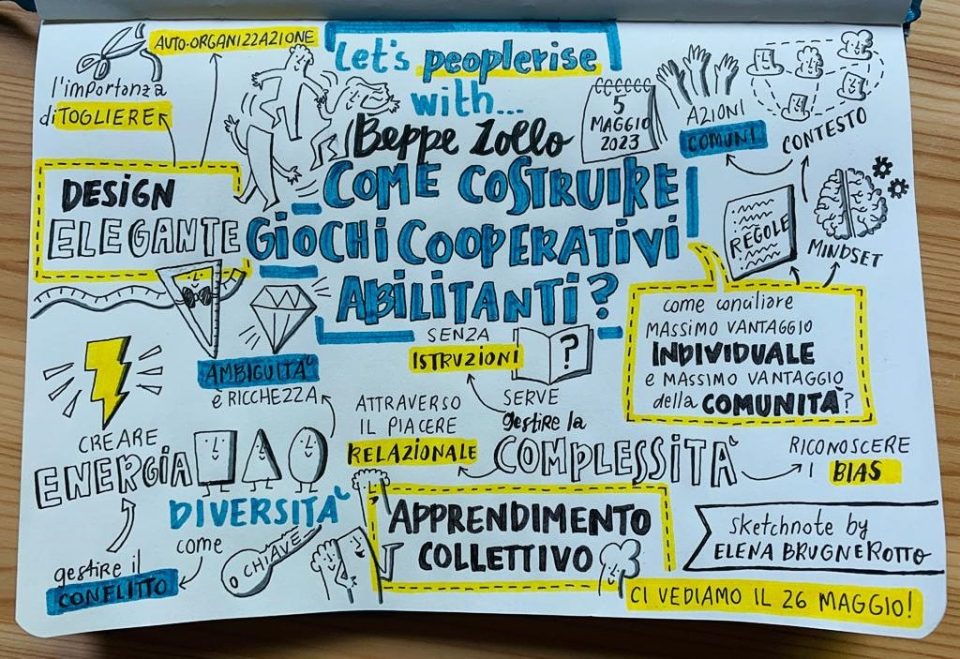 Let's peoplerise
with...
Beppe Zollo
5
MAGGIO
2023
COME COSTRUIRE
GIOCHI COOPERATIVI
ABILITANTI?
AUTO-ORGANIZZAZIONE
l'importanza
di TOGLIERE
DESIGN
ELEGANTE
AZIONI
COMUNI
CONTESTO
REGOLE
MINDSET
come conciliare
MASSIMO VANTAGGIO
INDIVIDUALE
e MASSIMO VANTAGGIO
della COMUNITÀ?
SENZA
ISTRUZIONI
?
SERVE
gestire la
COMPLESSITÀ
RICONOSCERE
I BIAS
ATTRAVERSO
IL PIACERE
RELAZIONALE
AMBIGUITÀ
È RICCHEZZA
CREARE
ENERGIA
DIVERSITÀ
come
O CHIAVE
gestire il
CONFLITTO
APPRENDIMENTO
COLLETTIVO
sketchnote by
ELENA BRUGNEROTTO
CI VEDIAMO IL 26 MAGGIO!